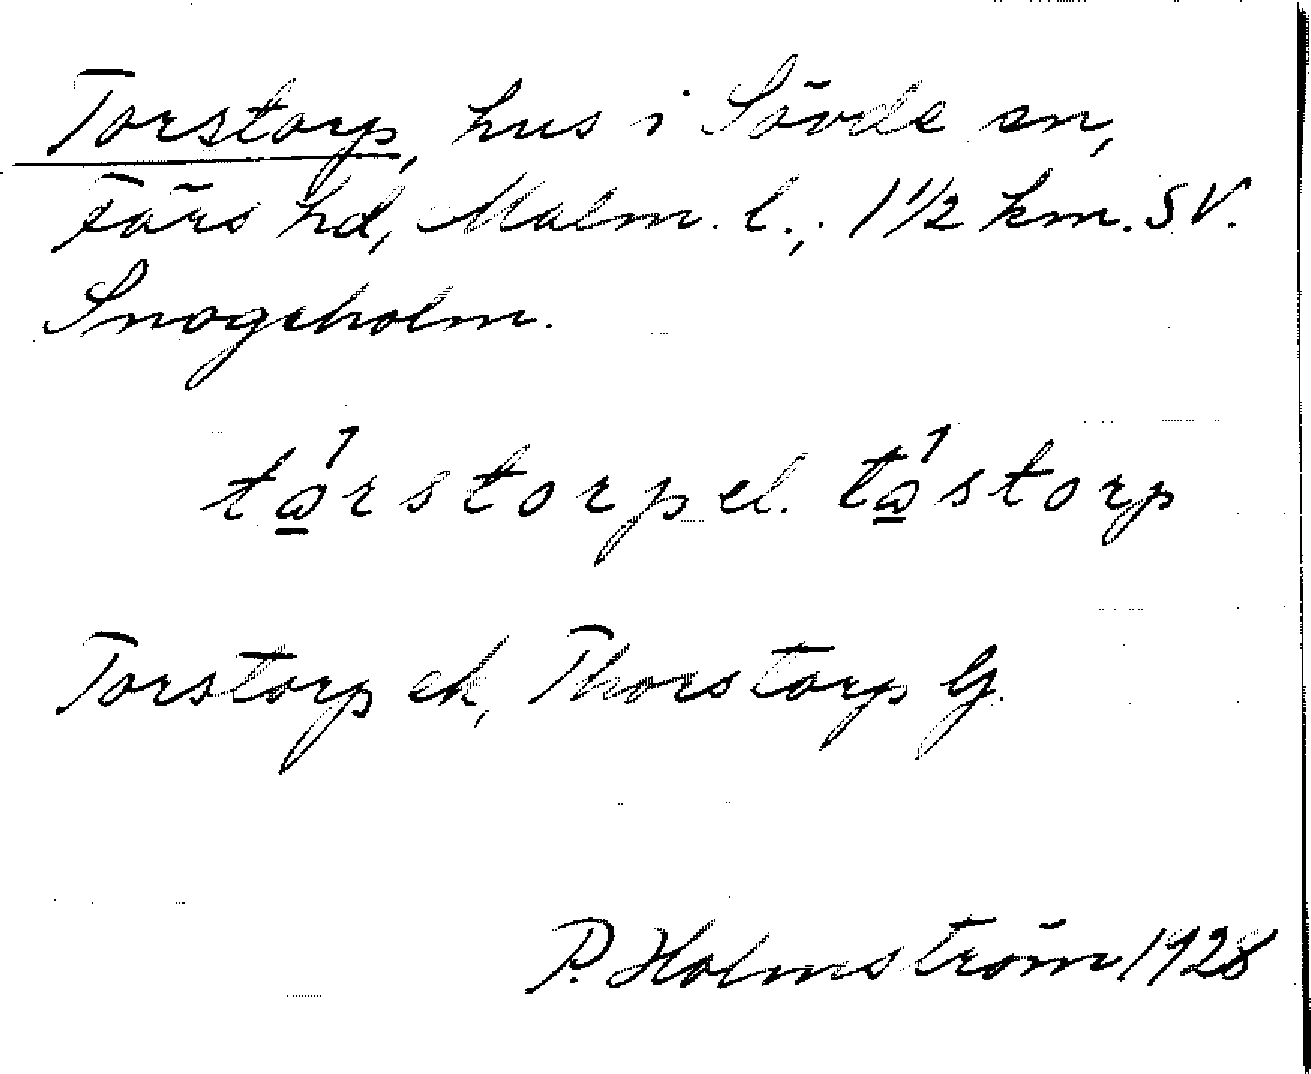 Torstorp, hus i Sövde sn,
Färs hd, Malm. l., 1 1/2 km. SV.
Snogeholm.
tǻ̱rstorp el. tǻ̱storp
Torstorp ek, Thorstorp G.
P. Holmström 1928